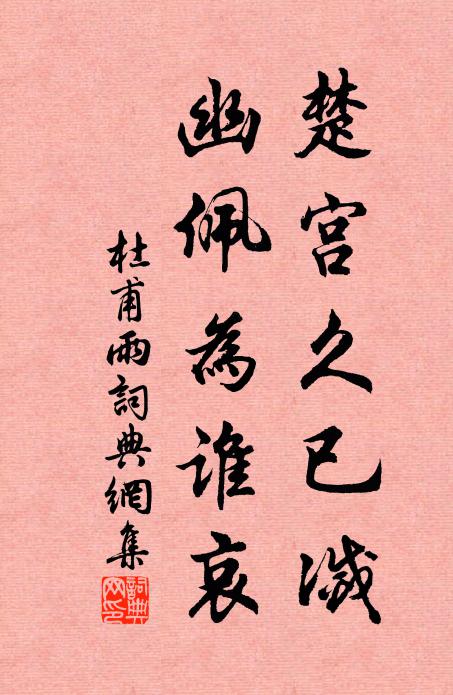 楚宮久已滅
幽佩為誰哀
杜甫雨詞典網集
詞典網印